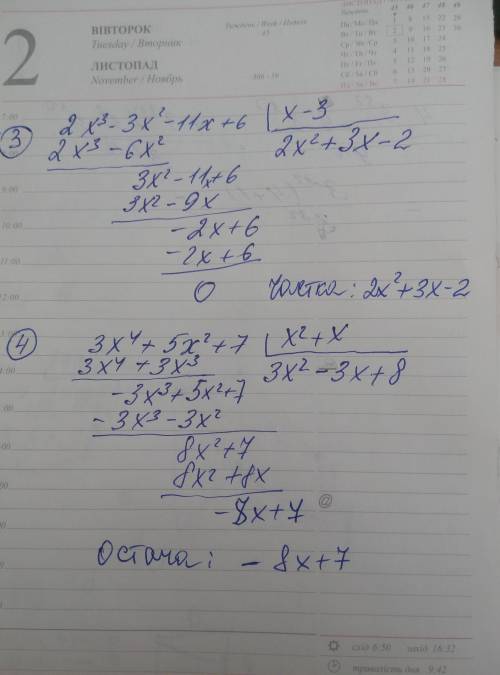 2
ВІВТОРОК
Tuesday / Вторник
ЛИСТОПАД
November / Ноябрь
Тиждень / Week / Неделя
45
306 - 59
3) 2x³ - 3x² - 11x + 6 | x - 3
2x³ - 6x² 2x² + 3x - 2
3x² - 11x + 6
3x² - 9x
- 2x + 6
- 2x + 6
0 Частка: 2x² + 3x - 2
4) 3x⁴ + 5x² + 7 | x² + x
3x⁴ + 3x³ 3x² - 3x + 8
- 3x³ + 5x² + 7
- 3x³ - 3x²
8x² + 7
8x² + 8x
- 8x + 7
Остача: - 8x + 7
схід 6:50 захід 16:32
тривалість дня 9:42